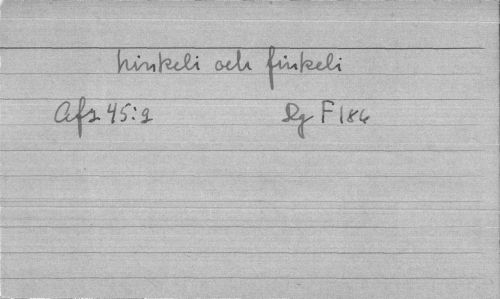 hinkeli och finkeli
Afz 45:2 Rg F 186